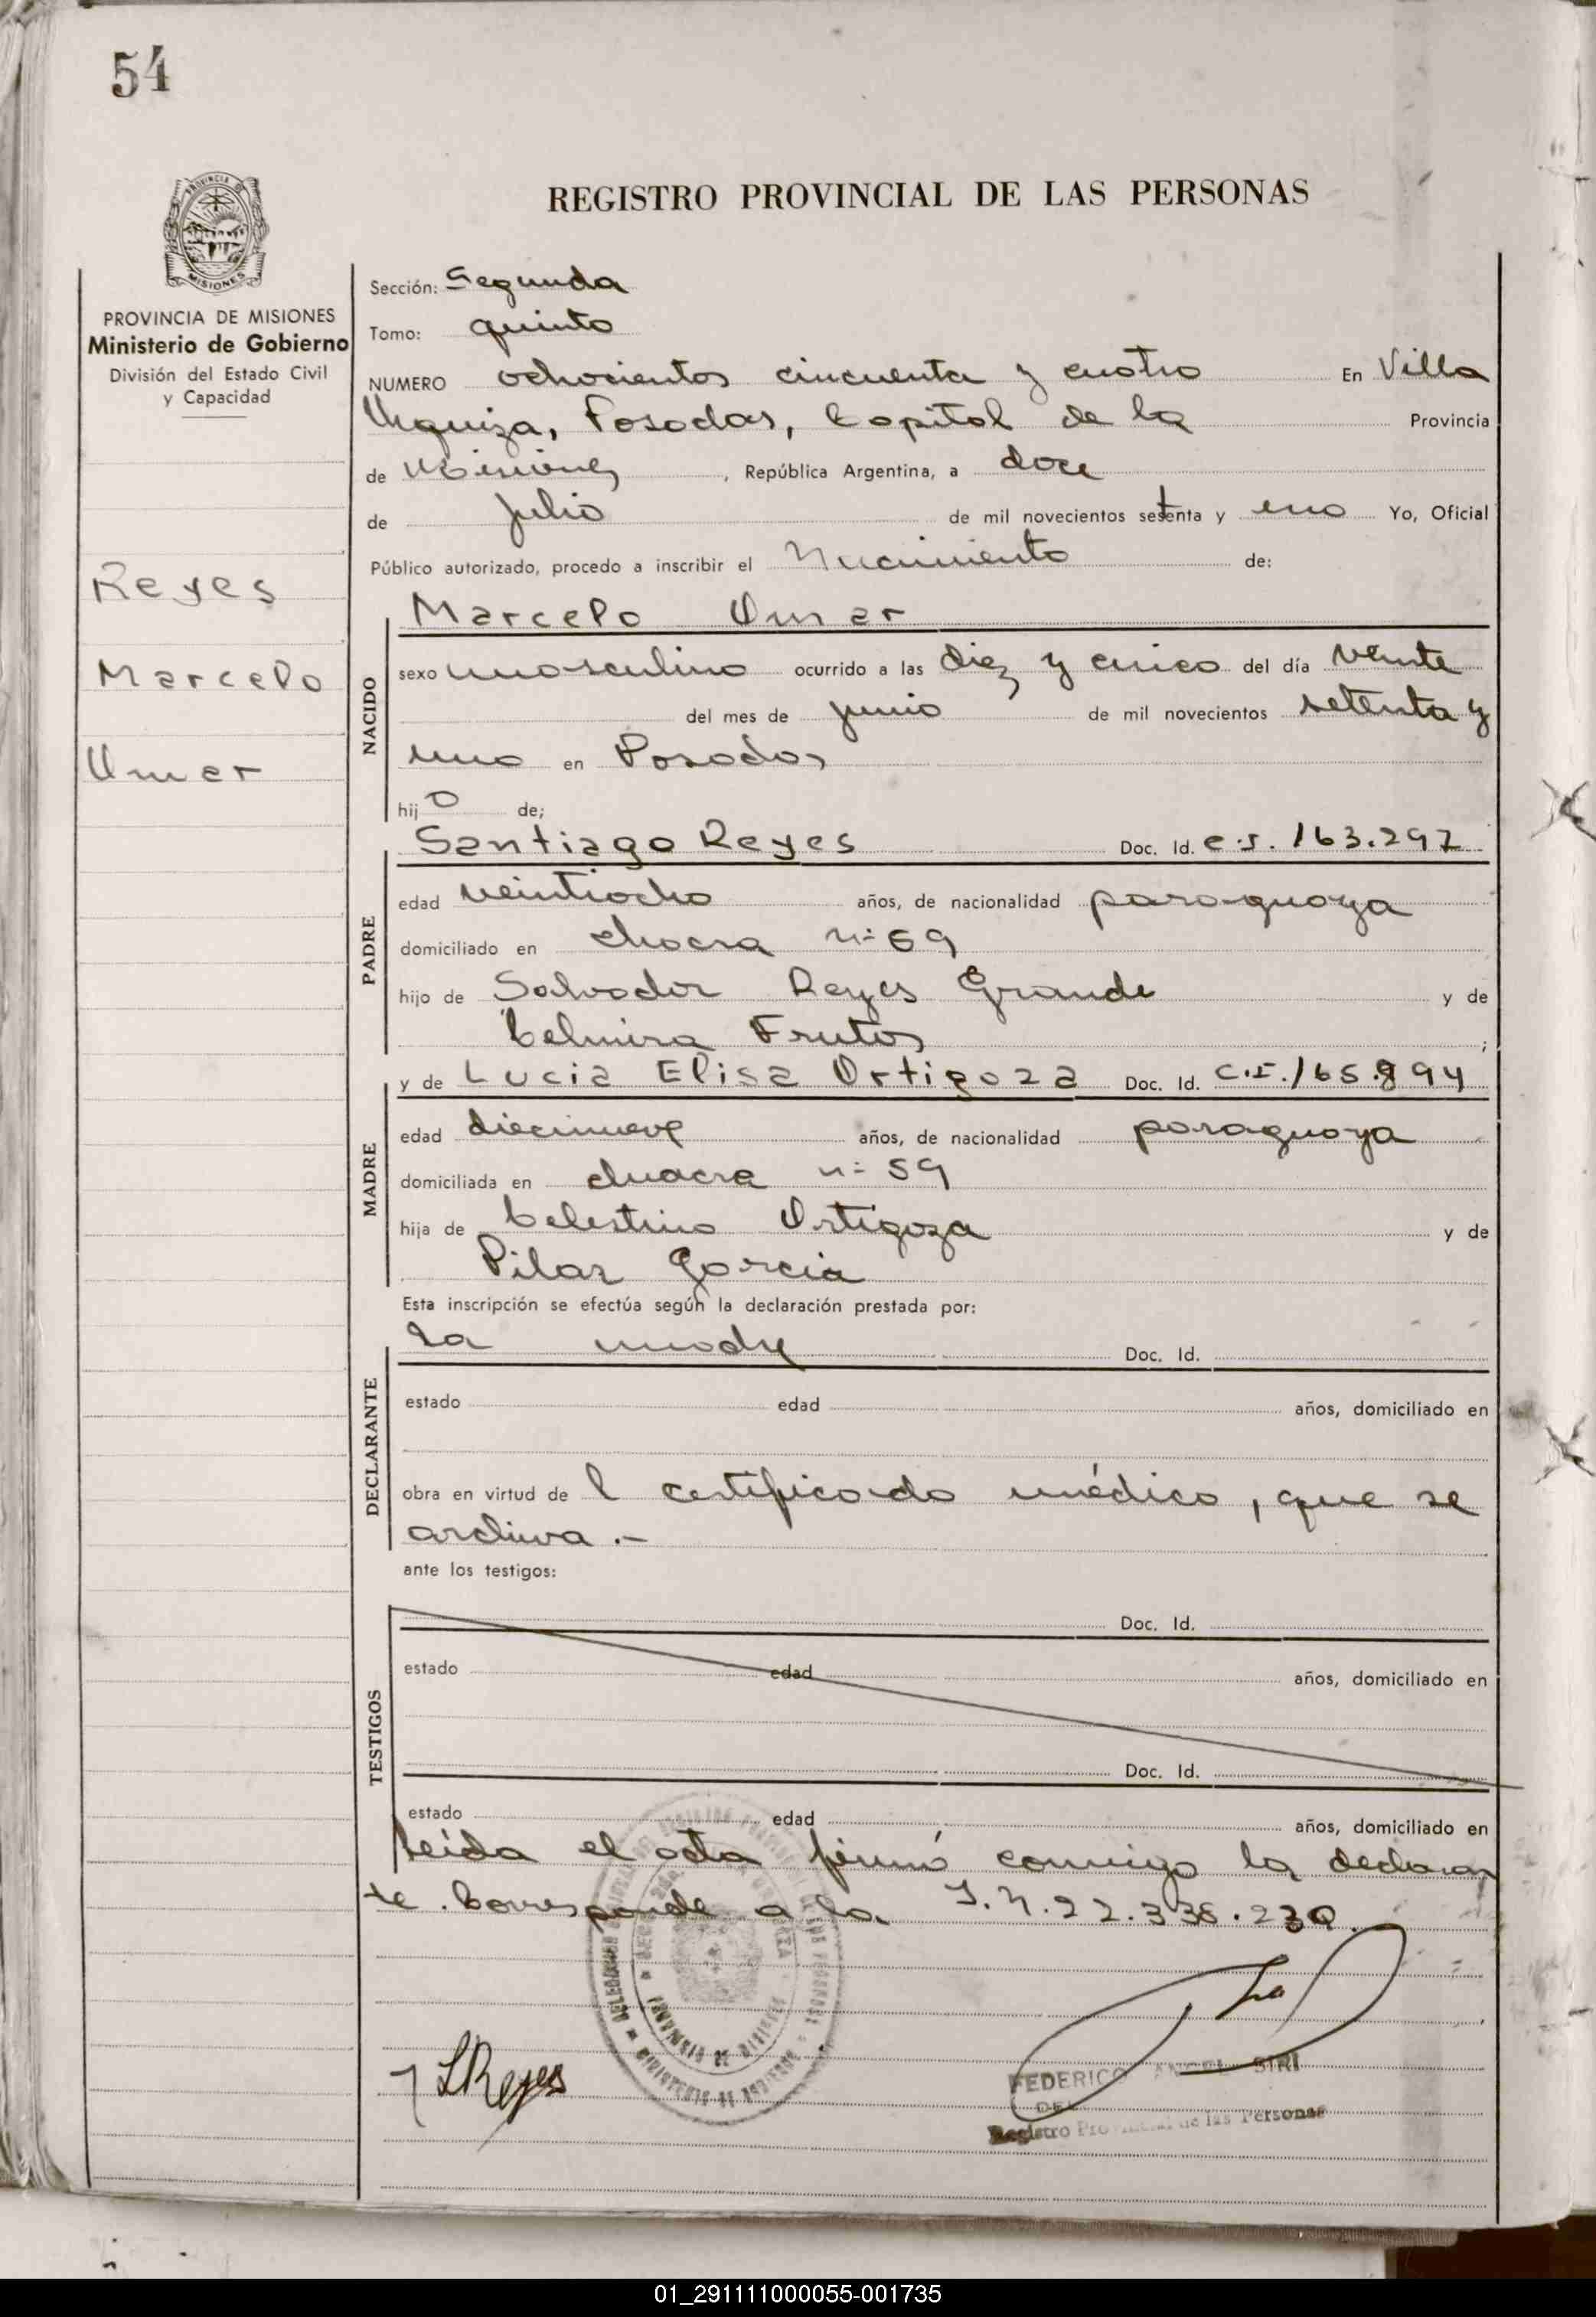 54
PROVINCIA DE
MISIONES
REGISTRO PROVINCIAL DE LAS PERSONAS
PROVINCIA DE MISIONES
Ministerio de Gobierno
División del Estado Civil
y Capacidad
Reyes
Marcelo
Omar
Sección: Segunda
Tomo: quinto
NUMERO ochocientos cincuenta y cuatro En Villa
Urquiza, Posadas, Capital de la Provincia
de Misiones, República Argentina, a doce
de julio de mil novecientos setenta y uno Yo, Oficial
Público autorizado, procedo a inscribir el Nacimiento de:
Marcelo Omar
NACIDO
sexo masculino ocurrido a las diez y cinco del día veinte
del mes de junio de mil novecientos setenta y
uno en Posadas
hijo de;
Santiago Reyes Doc. Id. C.I. 163.297
PADRE
edad veintiocho años, de nacionalidad paraguaya
domiciliado en chacra n° 59
hijo de Salvador Reyes Grande y de
Celmira Frutos ;
y de Lucia Elisa Ortigoza Doc. Id. C.I. 165.894
MADRE
edad diecinueve años, de nacionalidad paraguaya
domiciliada en chacra n° 59
hija de Celestino Ortigoza y de
Pilar Garcia
Esta inscripción se efectúa según la declaración prestada por:
La madre Doc. Id.
DECLARANTE
estado edad años, domiciliado en
obra en virtud de l certificado médico, que se
archiva.-
ante los testigos:
Doc. Id.
TESTIGOS
estado edad años, domiciliado en
Doc. Id.
estado edad años, domiciliado en
Leida el acta firmó conmigo la declaran
te. Corresponde a la I.N. 22.338.230.
LReyes
FEDERICO ANGEL SIRI
DEL
Registro Provincial de las Personas
01_291111000055-001735